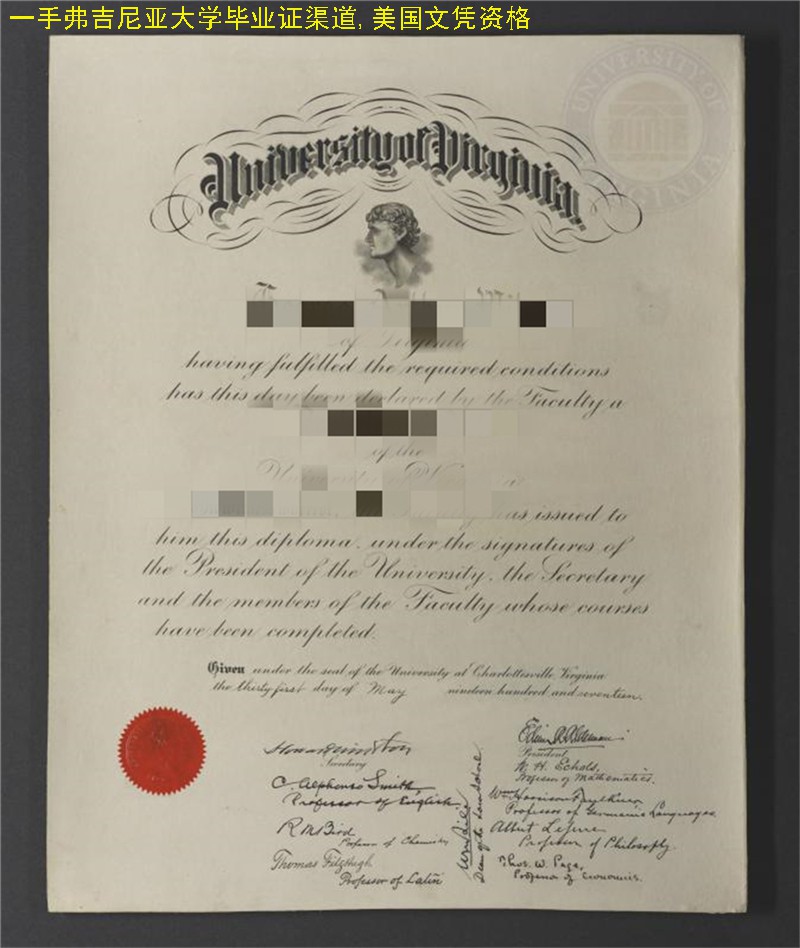 一手弗吉尼亚大学毕业证渠道, 美国文凭资格
UNIVERSITY OF VIRGINIA
University of Virginia
of Virginia
having fulfilled the required conditions
has this day been declared by the Faculty a
of the
University
as issued to
him this diploma, under the signatures of
the President of the University, the Secretary
and the members of the Faculty whose courses
have been completed.
Given under the seal of the University at Charlottesville, Virginia
the thirty first day of May nineteen hundred and seventeen.
Secretary
C. Alphonso Smith,
Professor of English.
R M Bird
Professor of Chemistry
Thomas FitzHugh
Professor of Latin
Dean of the
Edwin A. Alderman
President.
W. H. Echols,
Professor of Mathematics.
Wm Harrison Faulkner
Professor of Germanic Languages.
Albert Lefevre
Professor of Philosophy.
Thos. W. Page,
Professor of Economics.